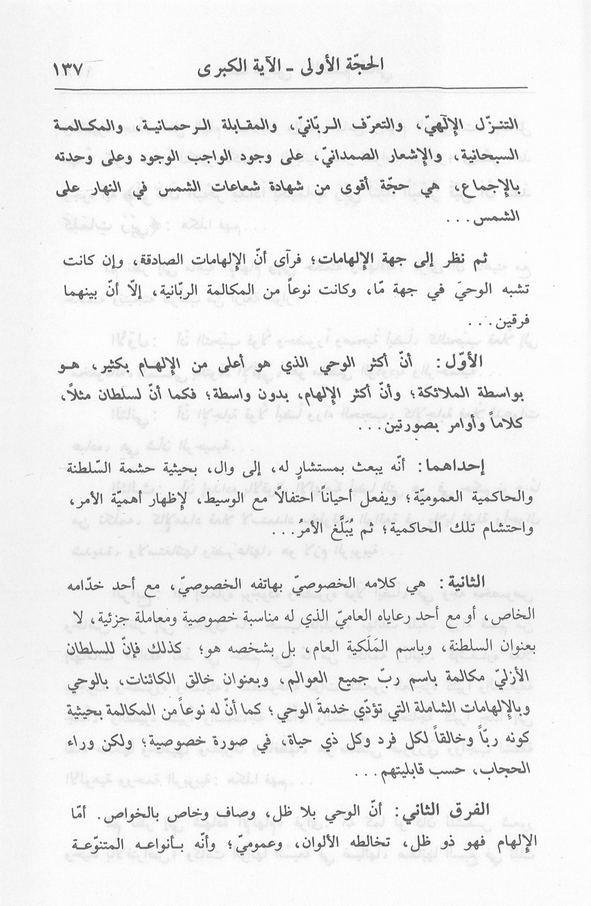 الحجّة الأولى - الآية الكبرى ١٣٧
التنـزّل الإلٓهيّ، والتعرّف الـربّانيّ، والمقـابلة الـرحمـانيـة، والمكـالمـة
السبحانية، والإشعار الصمدانيّ، على وجود الواجب الوجود وعلى وحدته
بالإجماع، هي حجّة أقوى من شهادة شعاعات الشمس في النهار على
الشمس...
ثم نظر إلى جهة الإلهامات؛ فرآى أنّ الإلهامات الصادقة، وإن كانت
تشبه الوحيَ في جهة مّا، وكانت نوعاً من المكالمة الربّانية، إلاّ أنّ بينهما
فرقين...
الأوّل: أنّ أكثر الوحي الذي هو أعلى من الإلهام بكثير، هـو
بواسطة الملائكة؛ وأنّ أكثر الإلهام، بدون واسطة؛ فكما أنّ لسلطان مثلاً،
كلاماً وأوامر بصورتين...
إحداهما: أنّه يبعث بمستشارٍ له، إلى وال، بحيثية حشمة السّلطنة
والحاكمية العموميّة؛ ويفعل أحياناً احتفالاً مع الوسيط، لإظهار أهميّة الأمر،
واحتشام تلك الحاكمية؛ ثم يُبَلَّغ الأمرُ...
الثانية: هي كلامه الخصوصيّ بهاتفه الخصوصيّ، مع أحد خدّامه
الخاص، أو مع أحد رعاياه العاميّ الذي له مناسبة خصوصية ومعاملة جزئية، لا
بعنوان السلطنة، وباسم المَلَكية العام، بل بشخصه هو؛ كذلك فإنّ للسلطان
الأزليّ مكالمة باسم ربّ جميع العوالم، وبعنوان خالق الكائنات، بالوحي
وبالإلهامات الشاملة التي تؤدّي خدمةَ الوحي؛ كما أنّ له نوعاً من المكالمة بحيثية
كونه ربّاً وخالقاً لكل فرد وكل ذي حياة، في صورة خصوصية؛ ولكن وراء
الحجاب، حسب قابليتهم...
الفرق الثاني: أنّ الوحي بلا ظل، وصاف وخاص بالخواص. أمّا
الإلهام فهو ذو ظل، تخالطه الألوان، وعموميّ؛ وأنّه بـأنواعـه المتنوّعـة